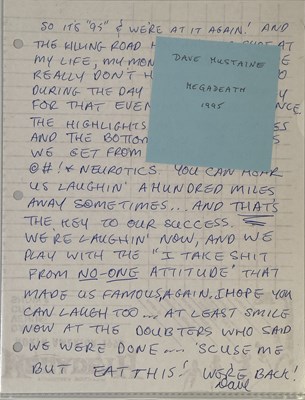 SO IT'S "95" & WE'RE AT IT AGAIN! AND
THE KILLING ROAD AT
MY LIFE, MY
REALLY DON'T
DURING THE DAY
FOR THAT
THE HIGHLIGHTS
AND THE
WE GET FROM
@#!& NEUROTICS. YOU CAN HEAR
US LAUGHIN' A HUNDRED MILES
AWAY SOMETIMES... AND THAT'S
THE KEY TO OUR SUCCESS.
WE'RE LAUGHIN' NOW, AND WE
PLAY WITH THE "I TAKE SHIT
FROM NO-ONE ATTITUDE" THAT
MADE US FAMOUS AGAIN. I HOPE YOU
CAN LAUGH TOO... AT LEAST SMILE
NOW AT THE DOUBTERS WHO SAID
WE WERE DONE... 'SCUSE ME
BUT EAT THIS! WE'RE BACK!
Dave
DAVE MUSTAINE
MEGADEATH
1995